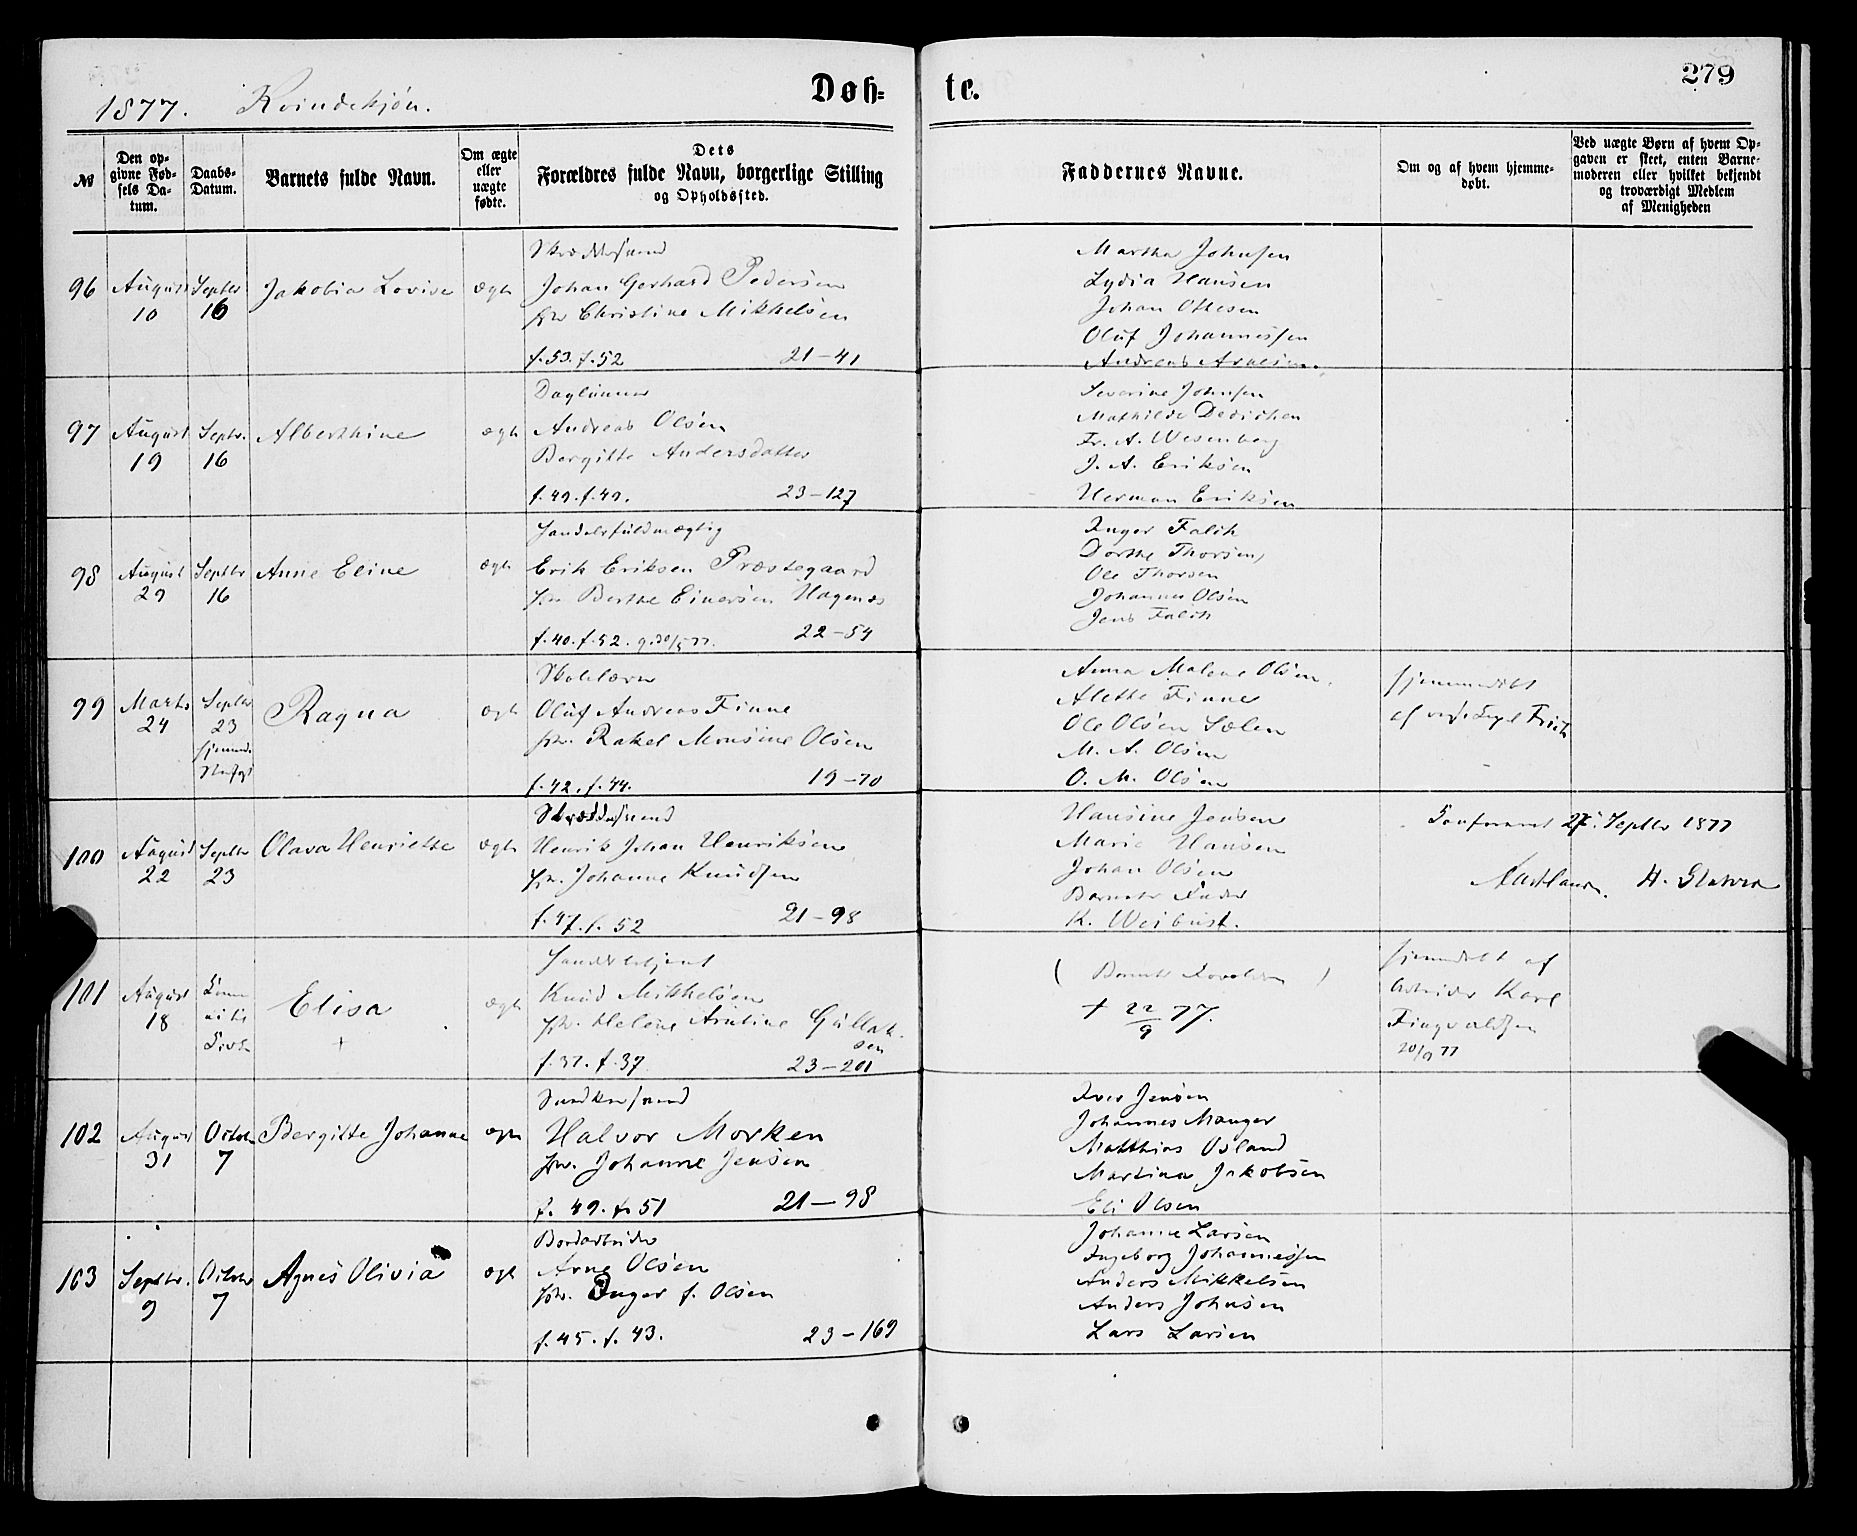 1877. Kvindekjøn.
Døb-
te.
279
№
Den op-
givne Fød-
sels Da-
tum.
Daabs-
Datum.
Barnets fulde Navn.
Om ægte
eller
uægte
fødte.
Dets
Forældres fulde Navn, borgerlige Stilling
og Opholdssted.
Faddernes Navne.
Om og af hvem hjemme-
døbt.
Ved uægte Børn af hvem Op-
gaven er skeet, enten Barne-
moderen eller hvilket bekjendt
og troværdigt Medlem
af Menigheden
96
August
10
Septbr
16
Jakobia Lovise
ægte
Johan Gerhard Pedersen
Christine Mikkelsen
f. 53. f. 52
21-41
Martha Johnsen
Lydia Hansen
Johan Ottesen
Oluf Johannessen
Andreas Arnesen
97
August
19
Septr.
16
Alberthine
ægte
Daglønner
Andreas Olsen
Bergitte Andersdatter
f. 49. f. 49.
23-127
Severine Johnsen
Mathilde Dedichen
Fr. A. Wesenberg
J. A. Eriksen
Herman Eriksen
98
August
29
Septbr
16
Anne Eline
ægte
Handelsfuldmægtig
Erik Eriksen Præstegaard
Berthe Einersen Hagenæs
f. 40. f. 52. g. 30/5 77.
22-54
Inger Falch
Dorthe Thorsen
Ole Thorsen
Johannes Olsen
Jens Falch
99
Marts
24
Septbr
23
Ragna
ægte
Skolelærer
Oluf Andreas Finne
Rakel Monsine Olsen
f. 42. f. 44.
19-70
Anna Malene Olsen
Alette Finne
Ole Olsen Sælen
M. A. Olsen
O. M. Olsen
hjemmedøbt
af
100
August
22
Septbr
23
Olava Henriette
ægte
Skræddersvend
Henrik Johan Henriksen
Johanne Knudsen
f. 47. f. 52
21-98
Hansine Jensen
Marie Hansen
Johan Olsen
Barnets Fader
K. Weibust.
Septbr 1877
101
August
18
Elisa
+
ægte
Knud Mikkelsen
Helene Gullak-
sen
f. 37. f. 37
23-201
( Barnets Forældre )
+ 22/9 77.
hjemdøbt af
Arbeider Karl
Fingvaldsen
20/9 77
102
August
31
Octobr
7
Bergitte Johanne
ægte
Snedkersvend
Halvor Morken
Johanne Jensen
f. 49. f. 51
21-98
Iver Jensen
Johannes Manger
Matthias Osland
Martina Jakobsen
Eli Olsen
103
Septbr.
9
Octobr
7
Agnes Olivia
ægte
Bordarbeider
Arne Olsen
Inger f. Olsen
f. 45. f. 43.
23-169
Johanne Larsen
Ingeborg Johannessen
Anders Mikkelsen
Anders Johnsen
Lars Larsen